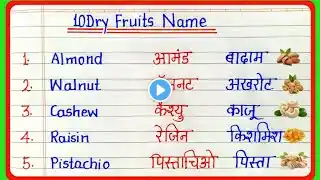 10 Dry Fruits Name
1. Almond आमंड बादाम
2. Walnut अखरोट
3. Cashew कैश्यु काजू
4. Raisin रेजिन किशमिश
5. Pistachio पिस्ताचिओ पिस्ता